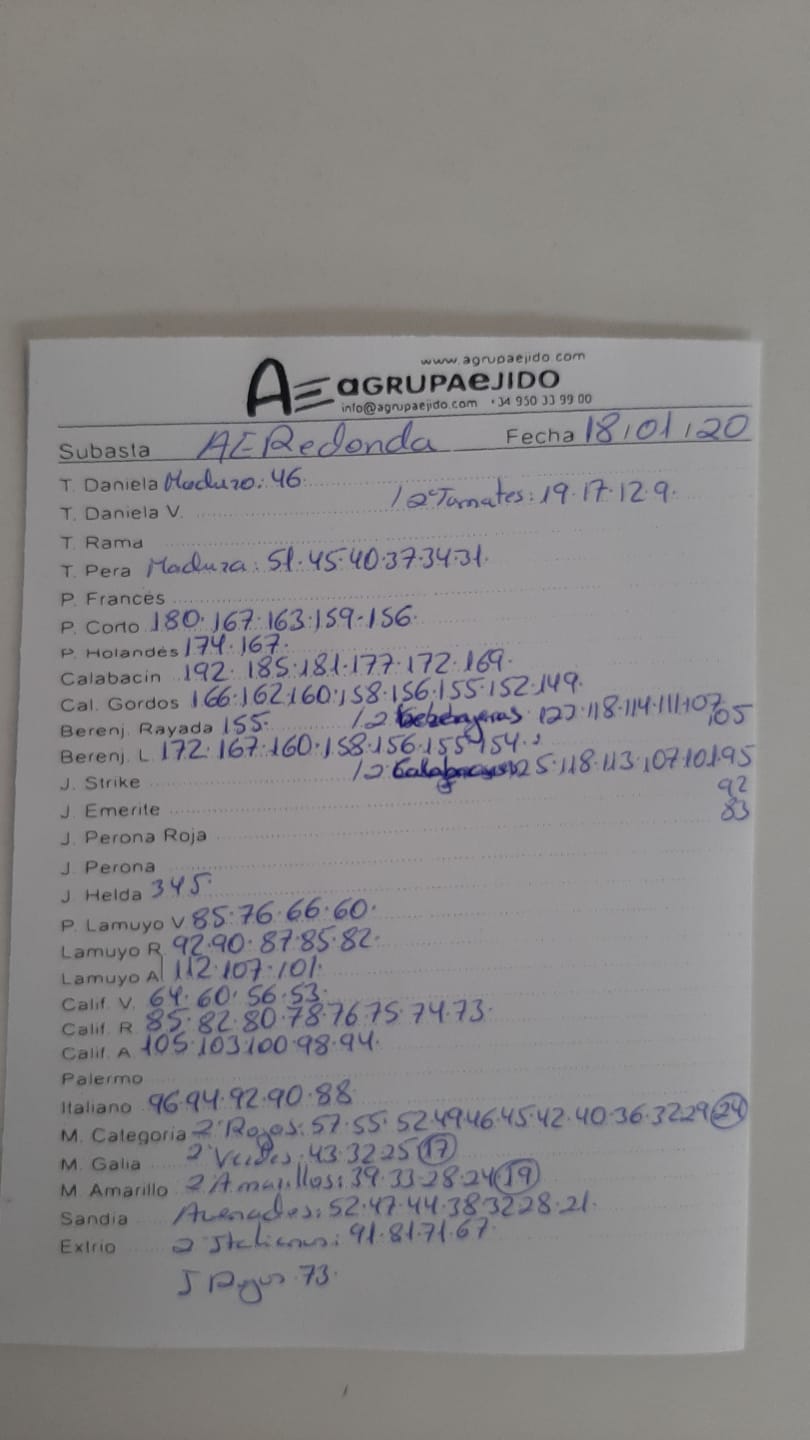 www.agrupaejido.com
AE aGRUPAeJIDO
info@agrupaejido.com +34 950 33 99 00
Subasta AE Redonda Fecha 18/01/20
T. Daniela Maduro: 46
T. Daniela V. / 2ª Tomates: 19·17·12·9·
T. Rama
T. Pera Madura: 51·45·40·37·34·31·
P. Francés
P. Corto 180·167·163·159·156·
P. Holandés 174·167·
Calabacín 192·185·181·177·172·169·
Cal. Gordos 166·162·160·158·156·155·152·149·
Berenj. Rayada 155· / 2 118·114·111·107 105
Berenj. L. 172·167·160·158·156·155·154·
J. Strike / 2 125·118·113·107·101·95
92
J. Emerite
83
J. Perona Roja
J. Perona
J. Helda 345·
P. Lamuyo V 85·76·66·60·
Lamuyo R. 92·90·87·85·82·
Lamuyo A 112·107·101·
Calif. V. 64·60·56·53·
Calif. R. 85·82·80·78·76·75·74·73·
Calif. A. 105·103·100·98·94·
Palermo
Italiano 96·94·92·90·88
M. Categoria 2ª Rojos: 57·55·52·49·46·45·42·40·36·32·29 24
M. Galia 2ª Verdes: 43·32·25 17
M. Amarillo 2ª Amarillos: 39·33·28·24 19
Sandia 52·47·44·38·32·28·21·
Extrio 2ª Italianos: 91·81·71·67·
73·